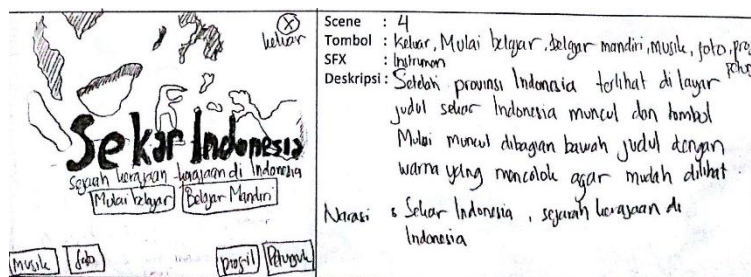 keluar
Sekar Indonesia
Sejarah kerajaan kerajaan di Indonesia
Mulai belajar
Belajar Mandiri
Musik
foto
profil
Petunjuk
Scene : 4
Tombol : Keluar, Mulai belajar, belajar mandiri, musik, foto,
SFX : Instrumen
Deskripsi : Setelah provinsi Indonesia terlihat di layar
judul sekar Indonesia muncul dan tombol
Mulai muncul dibagian bawah judul dengan
warna yang mencolok agar mudah dilihat.
Narasi : Sekar Indonesia, sejarah kerajaan di
Indonesia